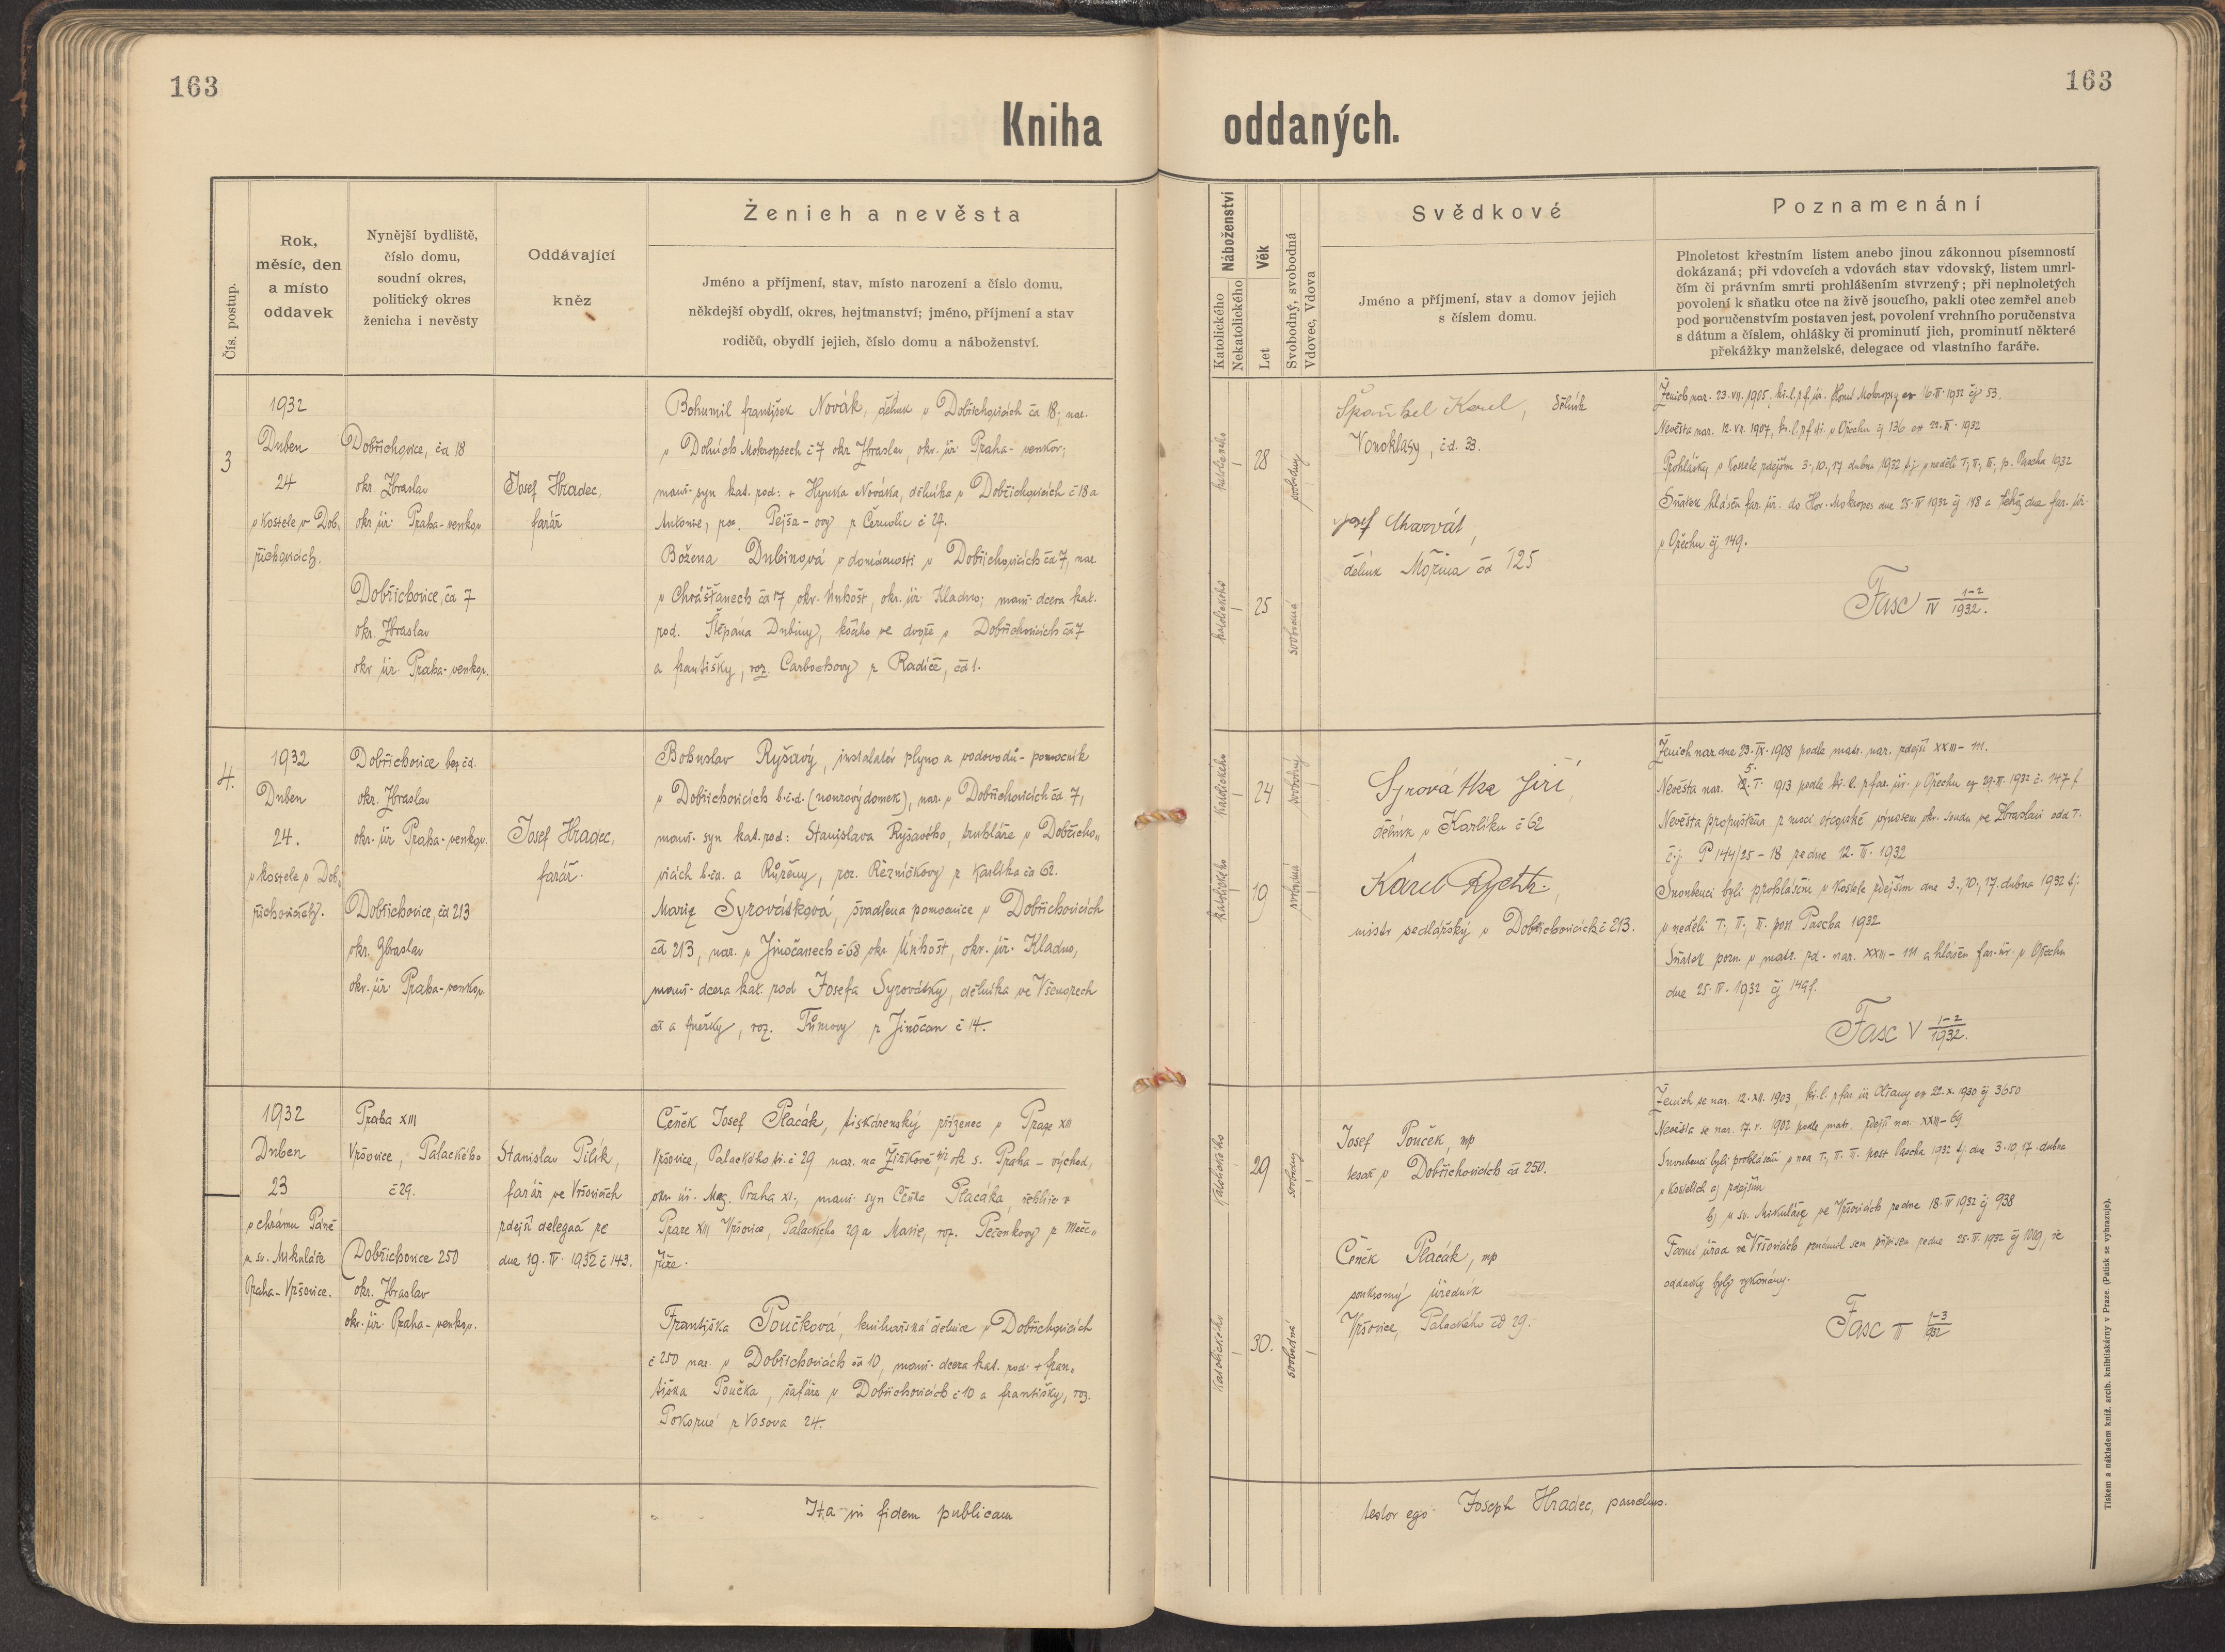 163
163
Kniha oddaných.
Čís. postup.
Rok, měsíc, den a místo oddavek
Nynější bydliště, číslo domu, soudní okres, politický okres ženicha i nevěsty
Oddávající kněz
Ženich a nevěsta
Jméno a příjmení, stav, místo narození a číslo domu,
někdejší obydlí, okres, hejtmanství; jméno, příjmení a stav
rodičů, obydlí jejich, číslo domu a náboženství.
Náboženství
Katolického
Nekatolického
Věk
Let
Svobodný, svobodná
Vdovec, Vdova
Svědkové
Jméno a příjmení, stav a domov jejich
s číslem domu.
Poznamenání
Plnoletost křestním listem anebo jinou zákonnou písemností
dokázaná; při vdovcích a vdovách stav vdovský, listem umrl-
čím či právním smrti prohlášením stvrzený; při neplnoletých
povolení k sňatku otce na živě jsoucího, pakli otec zemřel aneb
pod poručenstvím postaven jest, povolení vrchního poručenstva
s dátum a číslem, ohlášky či prominutí jich, prominutí některé
překážky manželské, delegace od vlastního faráře.
3
1932
Duben
24
v kostele v Dob-
řichovicích.
Dobřichovice, čd 18
okr. Zbraslav
okr. úř. Praha-venkov
Dobřichovice, čd 7
okr. Zbraslav
okr. úř. Praha-venkov.
Josef Hradec,
farář
Bohumil František Novák, dělník v Dobřichovicích čd 18; nar.
v Dolních Mokropsech č 7 okr. Zbraslav, okr. úř. Praha-venkov;
manž. syn kat. rod: + Hynka Nováka, dělníka v Dobřichovicích č 18 a
Antonie, roz. Pejša-ovy z Černolic č 27.
Božena Dubinová v domácnosti v Dobřichovicích čd 7, nar.
v Chrášťanech čd 17 okr. Unhošť, okr. úř. Kladno; manž. dcera kat.
rod. Štěpána Dubiny, kočího ve dvoře v Dobřichovicích čd 7
a Františky, roz. Carbochovy z Radíče, čd 1.
katolického
28
svobodný
katolického
25
svobodná
Karel, dělník
Vonoklasy, č.d. 33.
Josef Charvát,
dělník Mořina čd 125
Ženich nar. 23. VII. 1905, kř. l. z f. úř. Horní Mokropsy ex 16. II. 1932 čj 53.
Nevěsta nar. 12. VII. 1907, kř. l. z f. úř. v Ořechu čj 136 ex 22. II. 1932
Prohlášky v kostele zdejším 3., 10., 17 dubna 1932 t.j. v neděli I., II., III., p. Pascha 1932
Sňatek hlášen far. úř. do Hor. Mokropes dne 25. IV 1932 čj 148 a téhož dne far. úř.
v Ořechu čj 149.
Fasc IV 1-2/1932.
4.
1932
Duben
24.
v kostele v Dob-
řichovicích.
Dobřichovice bez čd.
okr. Zbraslav
okr. úř Praha-venkov.
Dobřichovice, čd 213
okr. Zbraslav
okr. úř. Praha-venkov.
Josef Hradec,
farář.
Bohuslav Ryšavý, instalatér plynu a vodovodů - pomocník
v Dobřichovicích b.č.d. (nouzový domek), nar. v Dobřichovicích čd 7,
manž. syn kat. rod: Stanislava Ryšavého, truhláře v Dobřicho-
vicích b.čd. a Růženy, roz. Řezníčkovy z Karlíka čd 62.
Marie Syrovátková, švadlena pomocnice v Dobřichovicích
čd 213, nar. v Jinočanech č 68 okr. Unhošť, okr. úř. Kladno,
manž. dcera kat. rod Josefa Syrovátky, dělníka ve Všenorech
čd a Anežky, roz. Tůmovy z Jinočan č 14.
katolického
24
svobodný
katolického
19
svobodná
Syrovátka Jiří,
dělník v Karlíku č 62
Karel Rychtr.,
mistr sedlářský v Dobřichovicích č 213.
Ženich nar. dne 23. IX. 1908 podle matr. nar. zdejší XXIII - 111.
Nevěsta nar. 5. I. 1913 podle kř. l. z far. úř. v Ořechu ex 29. III. 1932 č. 147 f
Nevěsta propuštěna z moci otcovské výnosem okr. soudu ve Zbraslavi odd I.
č.j. P 144/25 - 18 ze dne 12. III. 1932
Snoubenci byli prohlášeni v kostele zdejším dne 3., 10., 17. dubna 1932 tj.
v neděli I., II., III. post Pascha 1932
Sňatek pozn. v matr. zd. nar. XXIII - 111 a hlášen far. úř. v Ořechu
dne 25. IV. 1932 čj 149 f.
Fasc V 1-2/1932.
1932
Duben
23
v chrámu Páně
u sv. Mikuláše
Praha-Vršovice.
Praha XIII
Vršovice, Palackého
č 29.
Dobřichovice 250
okr. Zbraslav
okr. úř. Praha-venkov.
Stanislav Pilík,
farář ve Vršovicích
zdejší delegací ze
dne 19. IV. 1932 č 143.
Čeněk Josef Ptacák, tiskárenský zřízenec v Praze XIII
Vršovice, Palackého tř. č 29 nar. na Žižkově ok s. Praha - východ,
okr. úř. Mag. Praha XI., manž. syn Čeňka Ptacáka v
Praze XIII Vršovice, Palackého 29 a Marie, roz. Pečenkovy z Meče-
říže.
Františka Poučková, knihařská dělnice v Dobřichovicích
č 250 nar. v Dobřichovicích čd 10, manž. dcera kat. rod. + Fran-
tiška Poučka, šafáře v Dobřichovicích č 10 a Františky, roz.
Pokorné z Vosova 24.
katolického
29
svobodný
katolického
30.
svobodná
Josef Pouček, mp
tesař v Dobřichovicích čd 250.
Čeněk Ptacák, mp
soukromý úředník
Vršovice, Palackého čd 29.
Ženich se nar. 12. XII. 1903, kř. l. z far úř Olšany ex 22. X. 1930 čj 3650
Nevěsta se nar. 17. V. 1902 podle matr. zdejší nar. XXIII - 69
Snoubenci byli prohlášeni v ned I., II. III. post Pascha 1932 tj. dne 3. 10, 17. dubna
v kostelích a) zdejším
b) u sv. Mikuláše ve Vršovicích ze dne 18. IV 1932 čj 938
Farní úřad ve Vršovicích oznámil sem přípisem ze dne 25. IV. 1932 čj 1019, že
oddavky byly vykonány.
Fasc 1-3/932
Ita in fidem publicam
testor ego Joseph Hradec, parochus.
Tiskem a nákladem kníž. arcib. knihtiskárny v Praze. (Patisk se vyhrazuje).